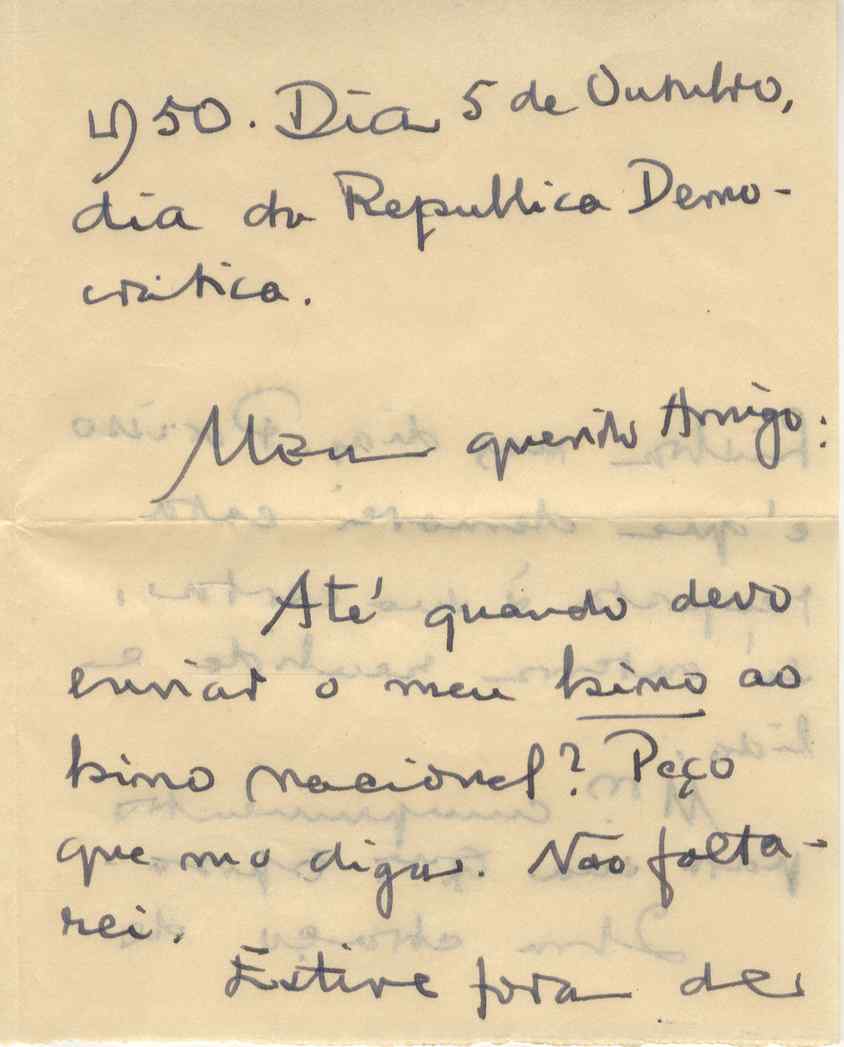 1950. Dia 5 de Outubro,
dia da Republica Demo-
cratica.
Meu querido Amigo:
Até quando devo
enviar o meu hino ao
hino nacional? Peço
que mo diga. Não falta-
rei.
Estive fora de